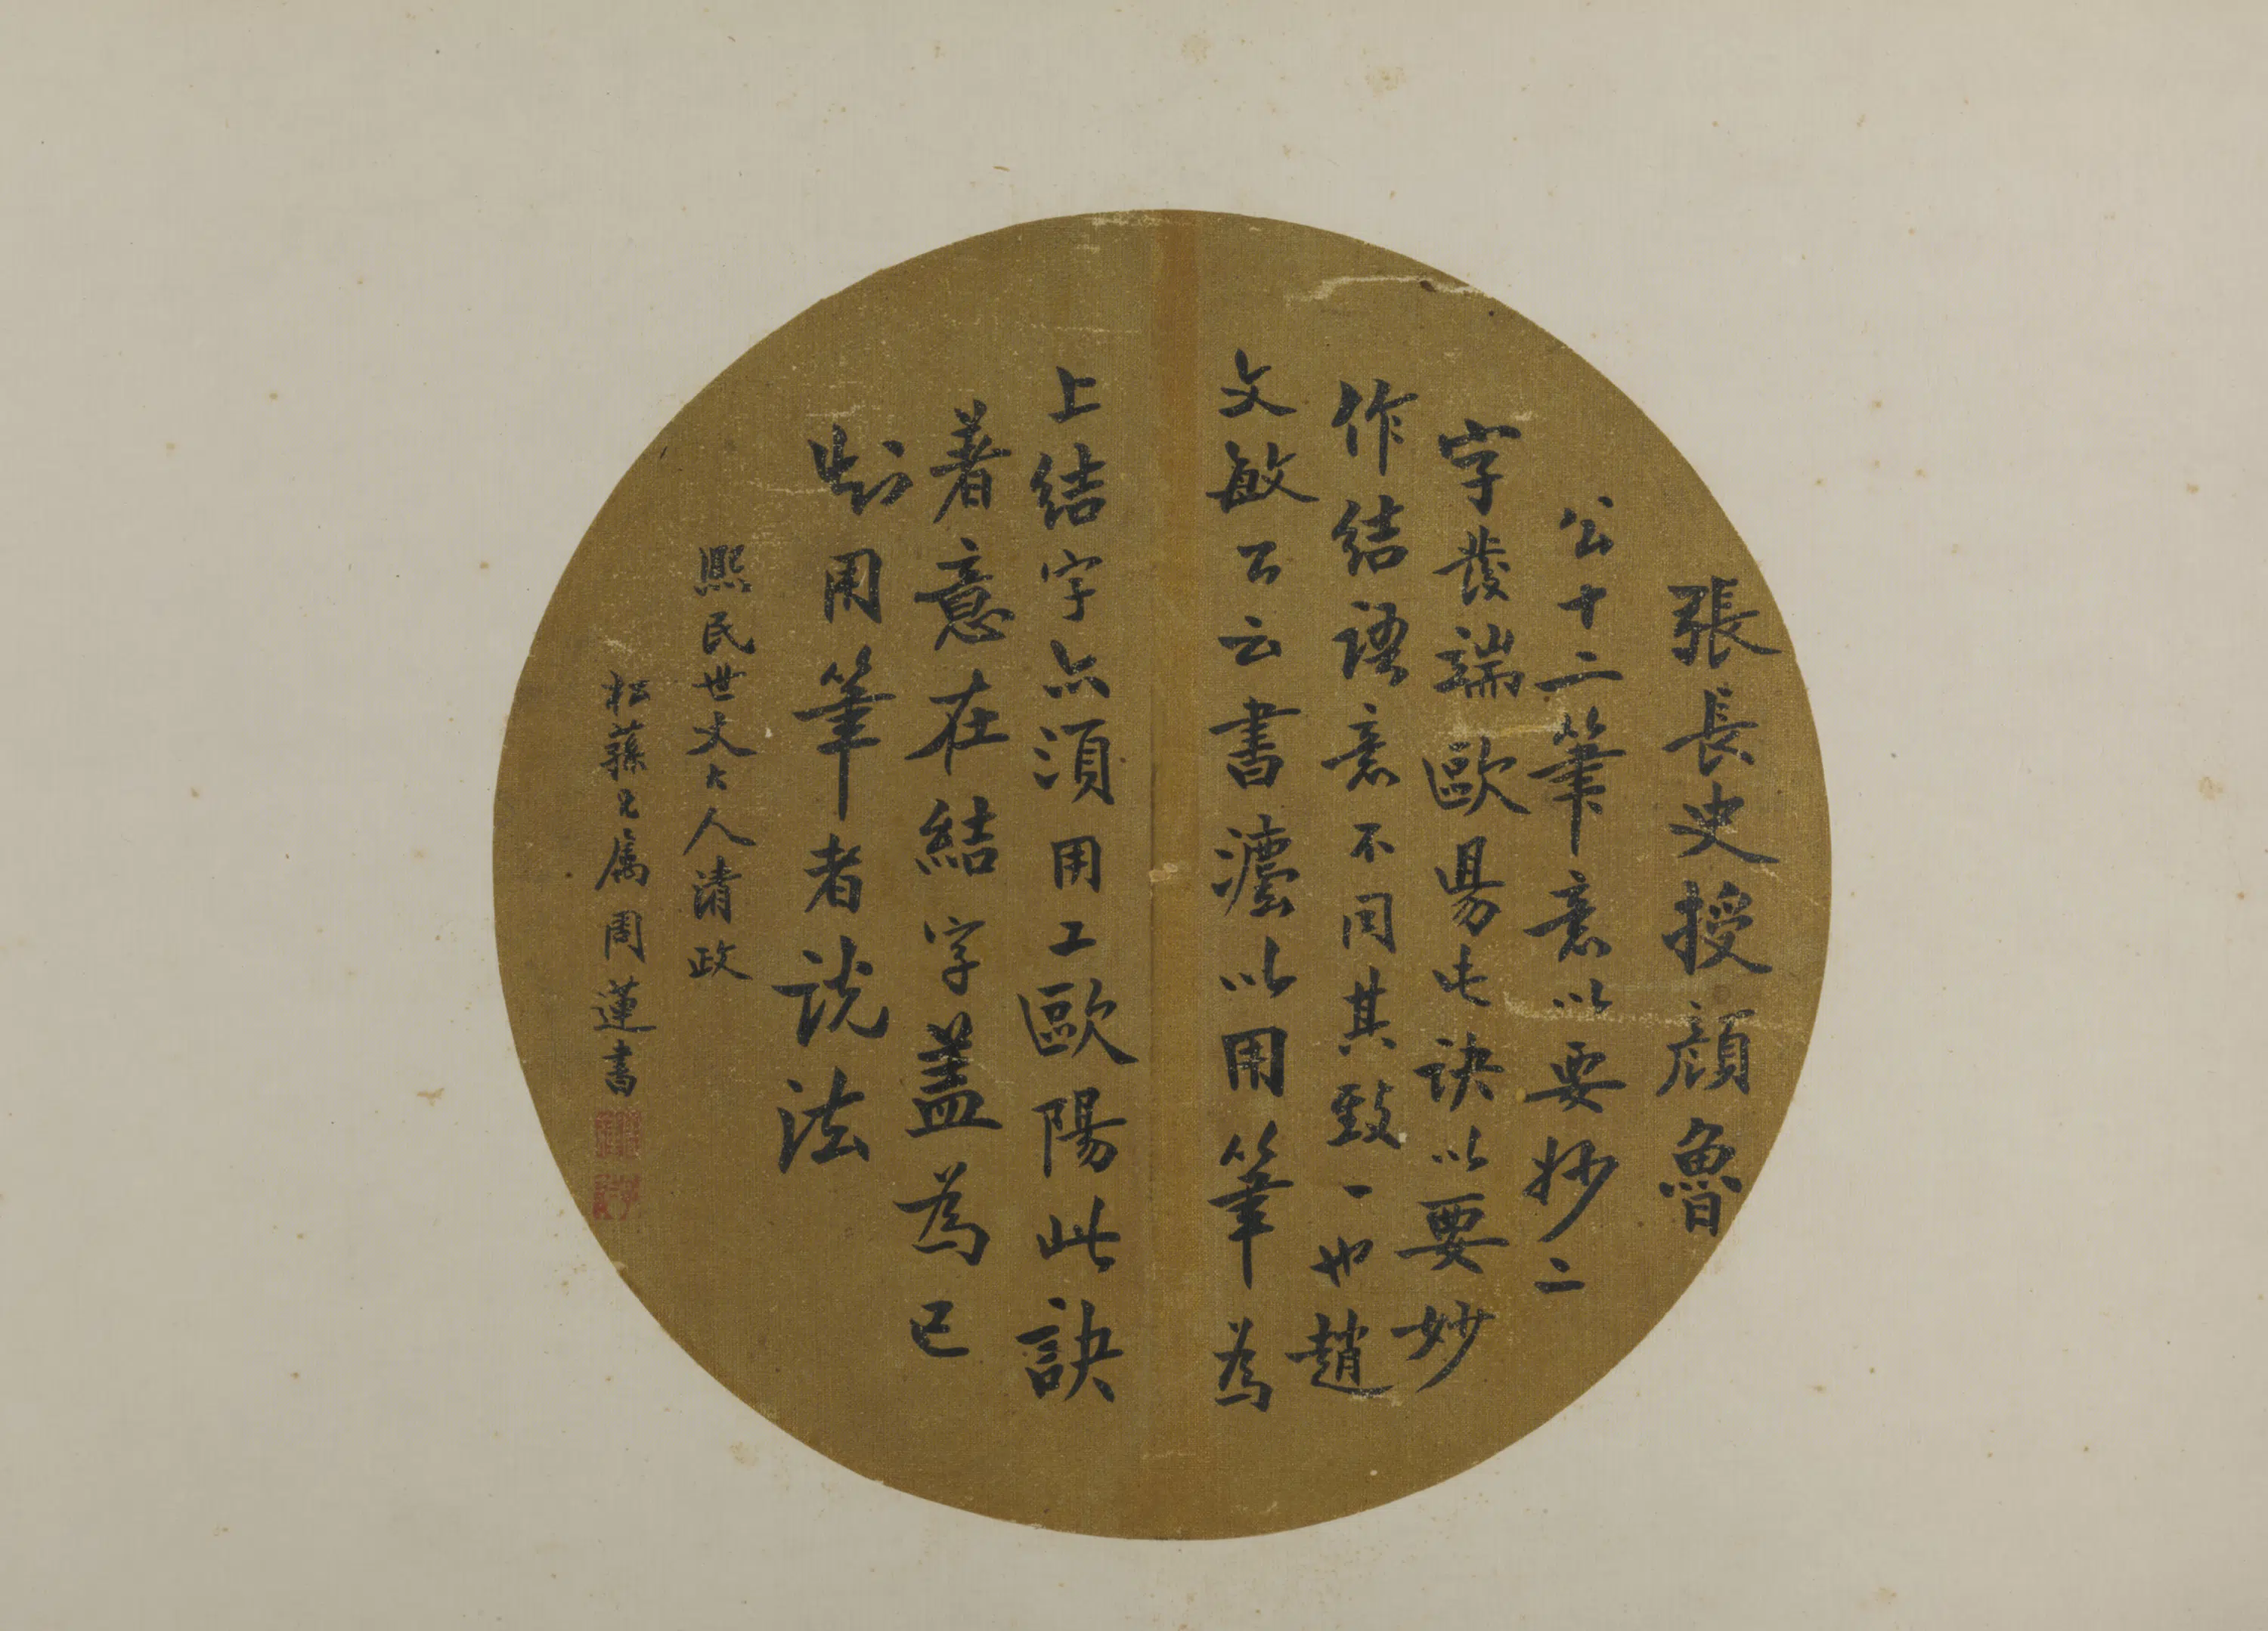 張長史授顔魯
公十二筆意以要妙二
字發端歐易七訣以要妙
作結語意不同其致一也趙
文敏公云書灋以用筆為
上結字亦須用工歐陽此訣
著意在結字蓋為已
用筆者說法
熙民世丈大人清政
松蓀兄属周蓮書